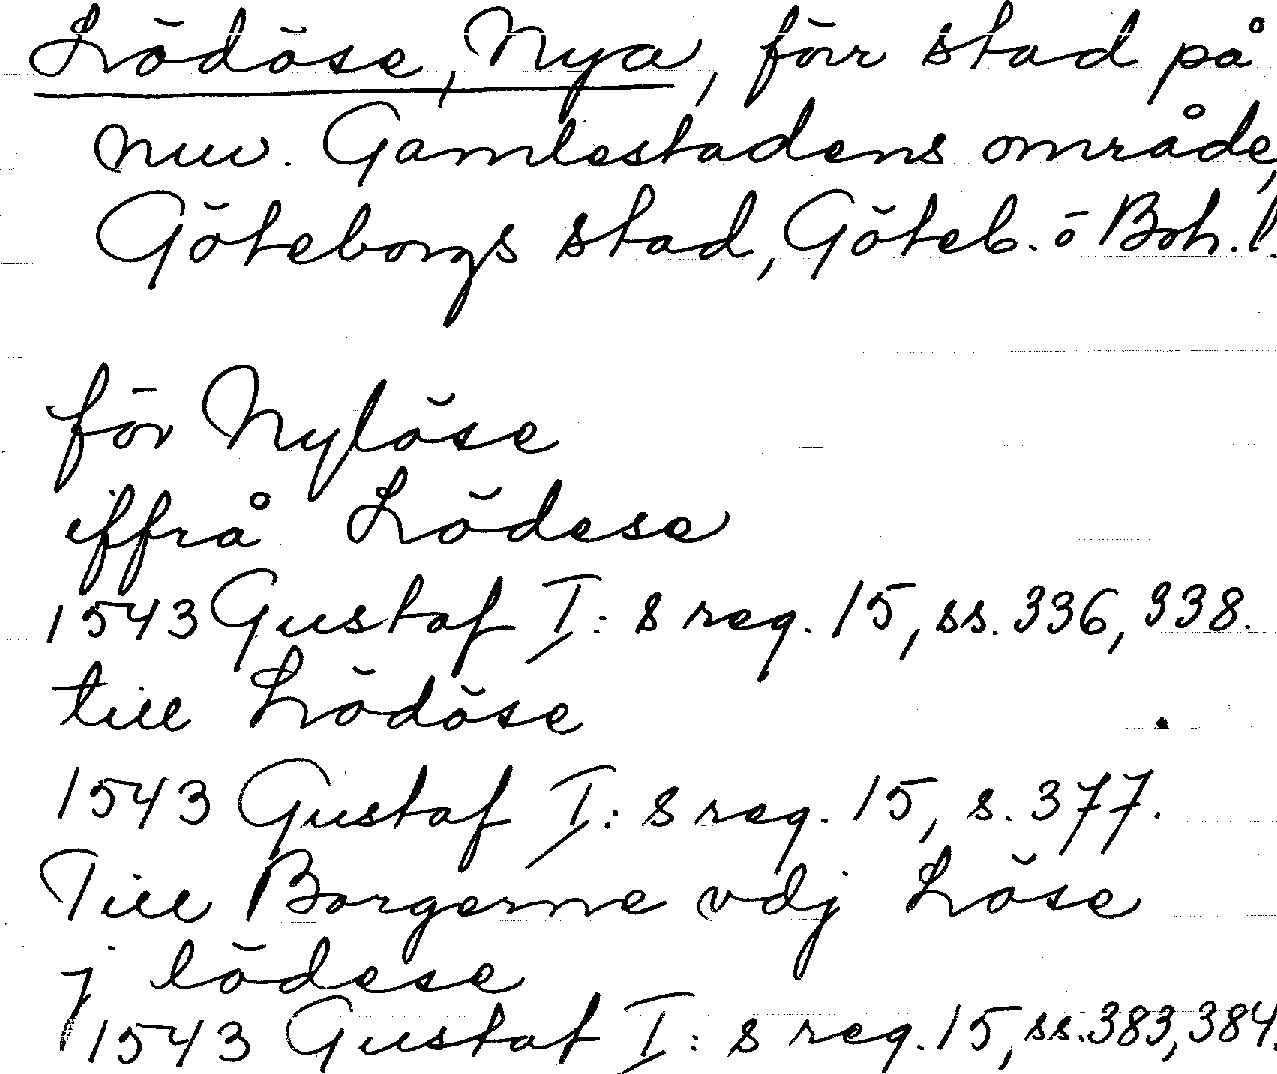 Lödöse, Nya, förr stad på
nuv. Gamlestadens område,
Göteborgs stad, Göteb. o Boh. l.
för Nylöse
iffrå Lödese
1543 Gustaf I:s reg. 15, ss. 336, 338.
till Lödöse
1543 Gustaf I:s reg. 15, s. 377.
Till Borgerne vdj Löse
j lödese
1543 Gustaf I:s reg. 15, ss. 383, 384.